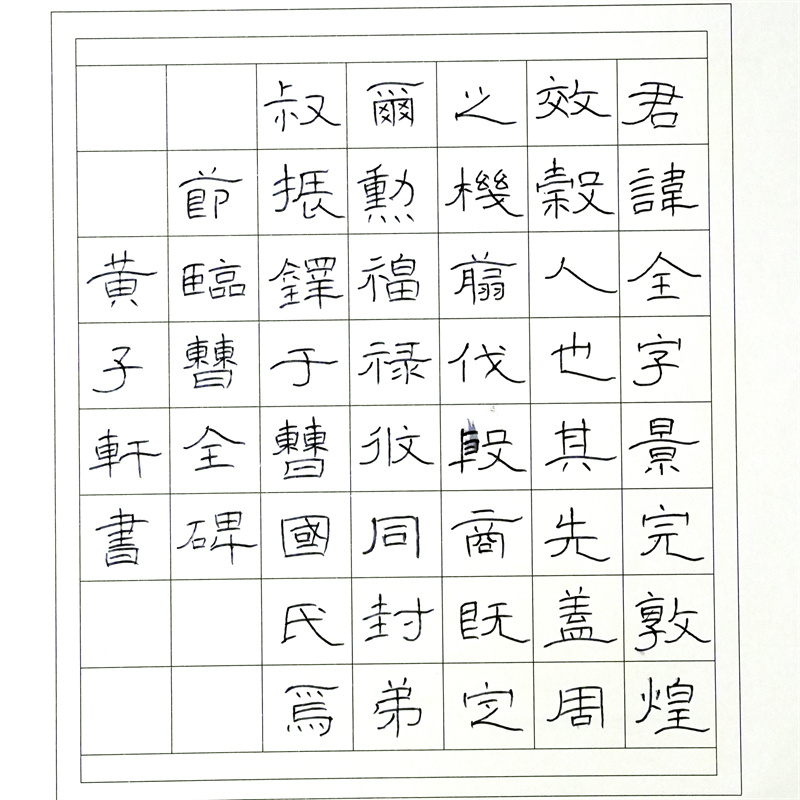 君諱全字景完敦煌
效穀人也其先蓋周
之機翦伐殷商既定
爾勲福禄攸同封弟
叔振鐸于曹國氏焉
節臨曹全碑
黄子軒書